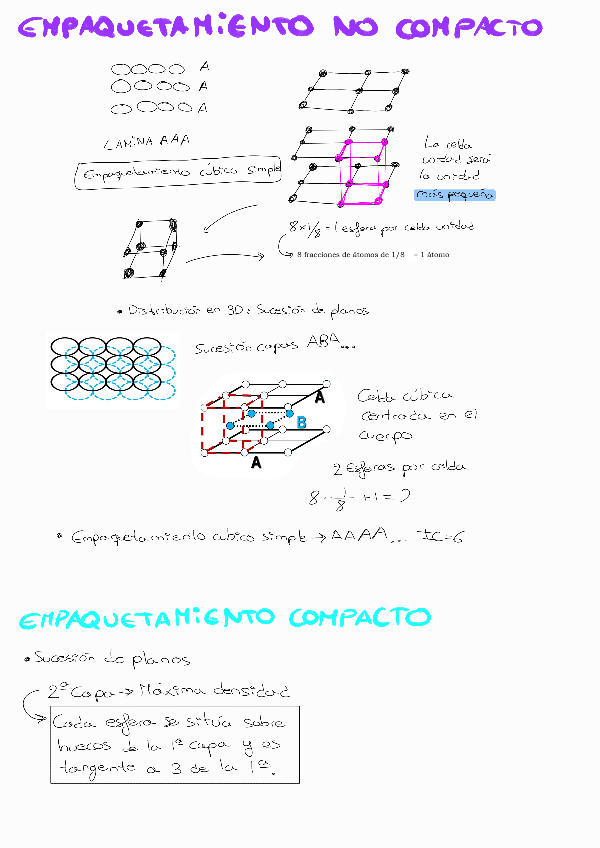 EMPAQUETAMIENTO NO COMPACTO
A
A
A
LAMINA AAA
Empaquetamiento cúbico simple
La celda
unidad será
la unidad
más pequeña
8 x 1/8 = 1 esfera por celda unidad
8 fracciones de átomos de 1/8 = 1 átomo
• Distribución en 3D: Sucesión de planos
Sucesión capas ABA...
A
B
A
Celda cúbica
centrada en el
cuerpo
2 Esferas por celda
8 · 1/8 + 1 = 2
• Empaquetamiento cúbico simple → AAAA... IC=6
EMPAQUETAMIENTO COMPACTO
• Sucesión de planos
2ª Capa → Máxima densidad
Cada esfera se situa sobre
huecos de la 1ª capa y es
tangente a 3 de la 1ª.